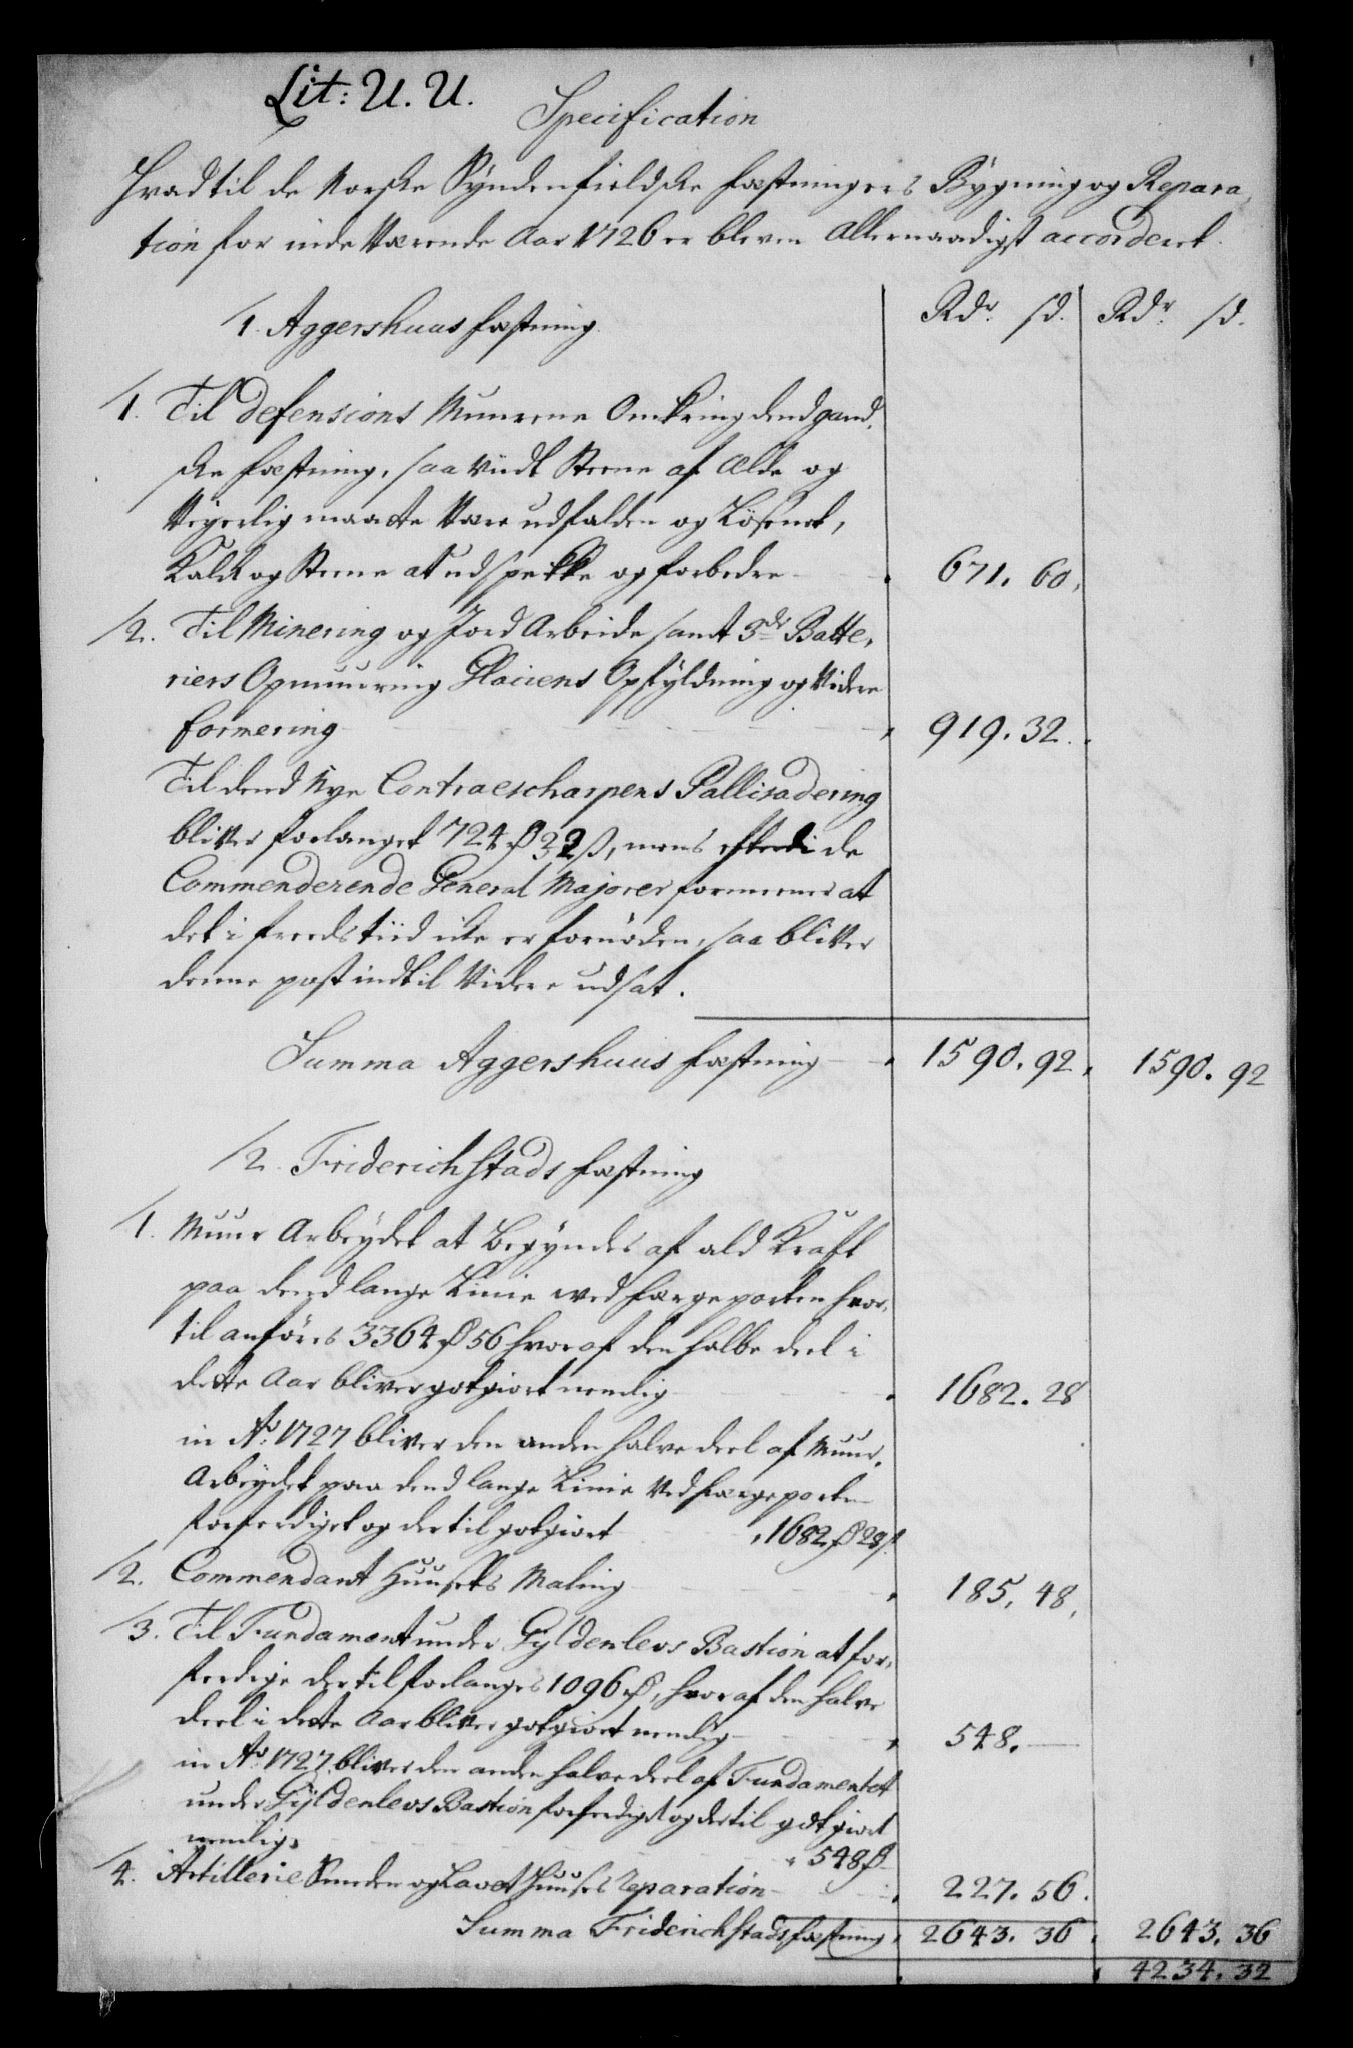 Lit: U. U.
Specification
Hvad til de Norske Syndenfieldske Fæstningers Bygning og Repara,
tion for inde Værende Aar 1726 er bleven Allernaadigst accorderet.
Rdr. sd. Rdr. sd.
1. Aggershuus Fæstning
1. Til defensions Muurene Omkring dend gand,
ske Fæstning, saa viidt Steene af Ælde og
Veyerlig maatte Være udfalden og Løsnet,
Kalk og Steene at udspekke og forbedre 671. 60.
2. Til Minering og Jord Arbeide samt 3de Batte,
riers Opmuuring Glaciens Opfyldning og Videre
formering 919. 32.
Til dend Nye Contraescharpens Pallisadering
bliver forlanget 724 rd 32 s, mens efterdi de
Commenderende General Majorer formeener at
det i Freeds tiid icke er fornøden, saa bliver
denne post indtil Videre udsat.
Summa Aggershuus Fæstning 1590. 92. 1590. 92
2. Friderichstads Fæstning
1. Muur Arbeydet at Begyndes af ald Kraft
paa dend lange Linie ved Færgeporten hvor,
til anføres 3364 rd 56 hvoraf den halve deel i
dette Aar bliver gotgiort nemlig 1682. 28
in Ao. 1727 bliver den anden halve deel af Muur,
Arbeydet paa dend lange Linie Ved Færgeporten
forferdiget og dertil gotgiort 1682 rd 28 s.
2. Commendant Huusets Maling 185. 48.
3. Til Fundament under Gyldenlevs Bastion at for,
ferdige dertil forlanges 1096 rd, hvoraf den halve
deel i dette Aar bliver gotgiort nemlig 548. —
in Ao. 1727. bliver den anden halve deel af Fundamentet
under Gyldenlevs Bastion forferdiget og dertil gotgiort
nemlig 548 rd
4. Artillerie Smeden og Lavet Huuses Reparation 227. 56.
Summa Friderichstads Fæstning 2643. 36. 2643. 36
4234. 32